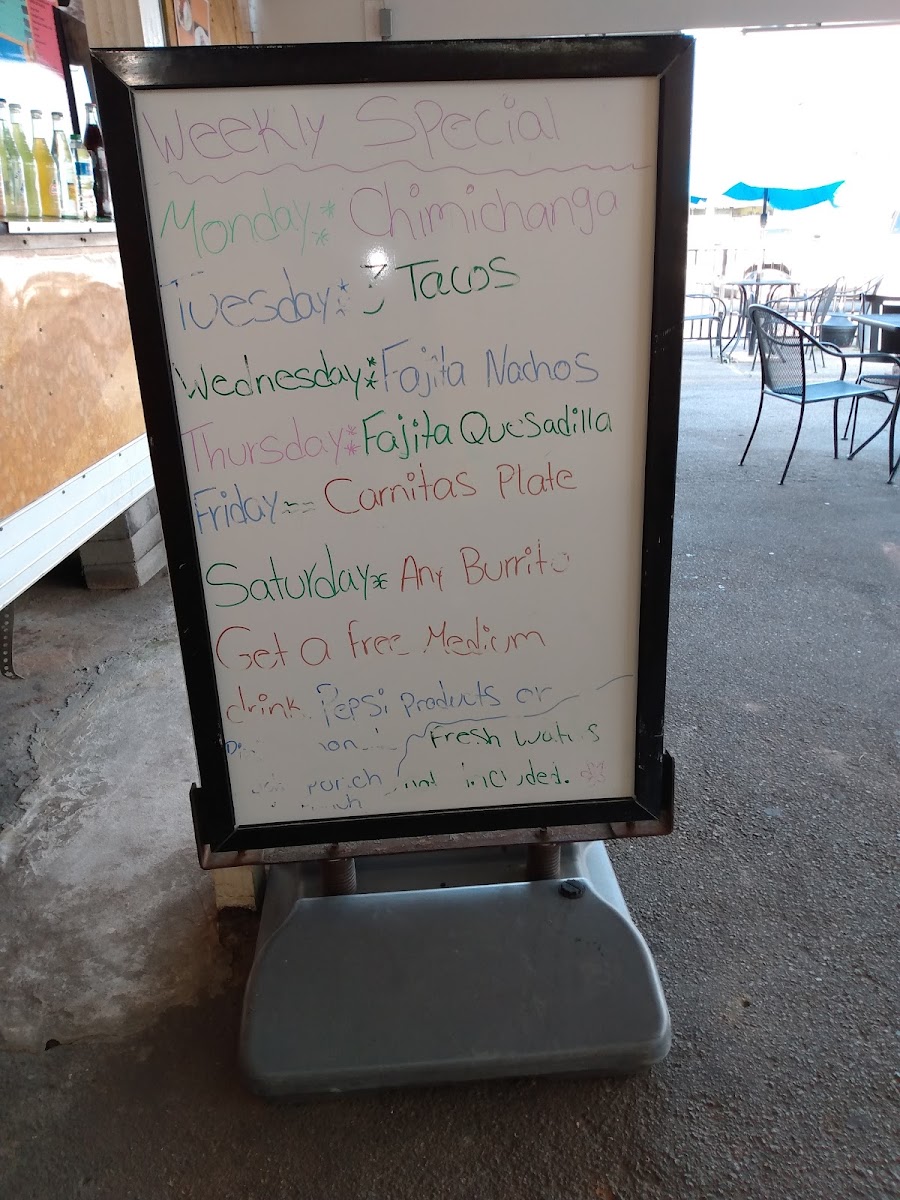 Weekly Special
Monday: Chimichanga
Tuesday: 3 Tacos
Wednesday: Fajita Nachos
Thursday: Fajita Quesadilla
Friday == Carnitas Plate
Saturday* Any Burrito
Get a free Medium
drink. Pepsi Products or
Fresh waters
not included.